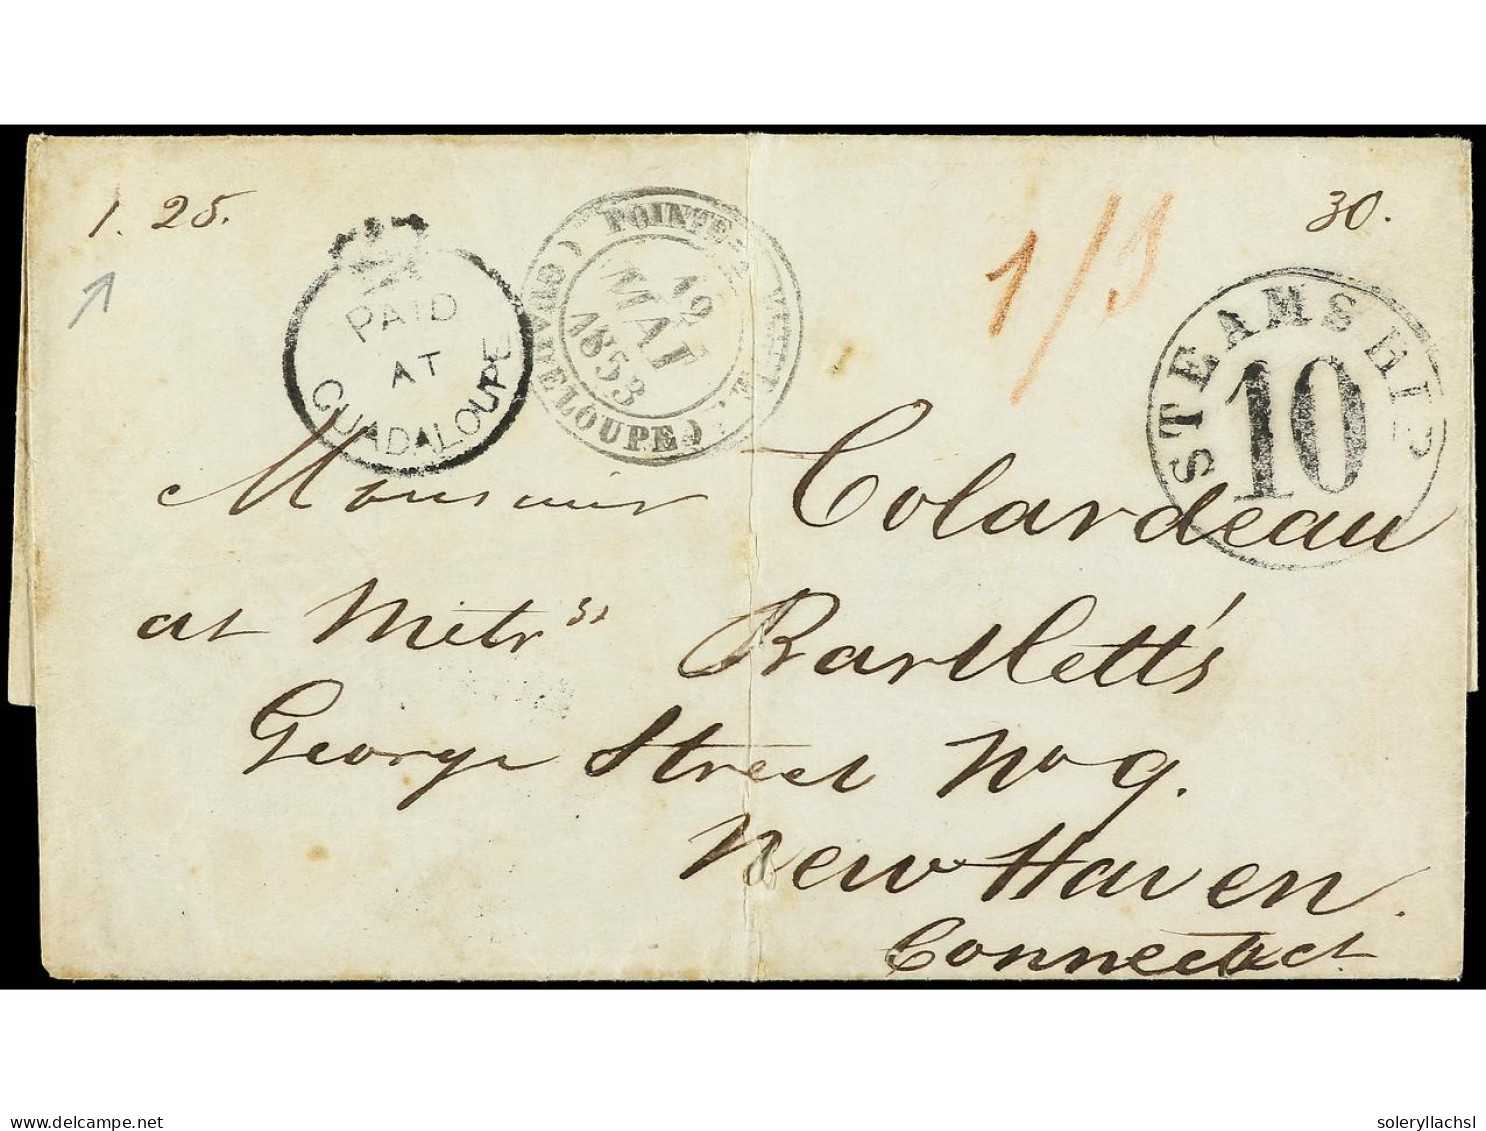 1. 25.
30.
1/3
PAID
AT
GUADALOUPE
POINTE-A-PITRE
12
MAI
1853
STEAMSHIP
10
Monsieur Colardeau
at Metrss Bartlett's
George Street No 9.
New Haven.
Connecticut
delcampe.net
soleryllachsl